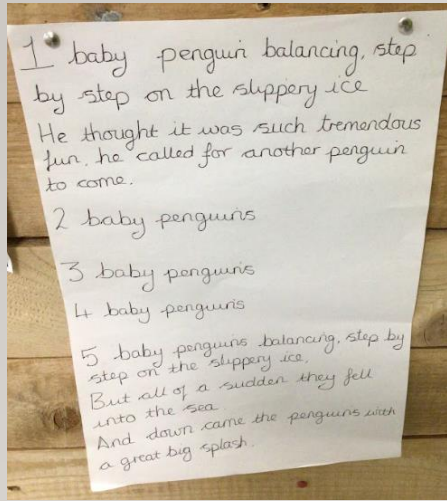 1 baby penguin balancing, step
by step on the slippery ice
He thought it was such tremendous
fun, he called for another penguin
to come.
2 baby penguins
3 baby penguins
4 baby penguins
5 baby penguins balancing, step by
step on the slippery ice,
But all of a sudden they fell
into the sea
And down came the penguins with
a great big splash.